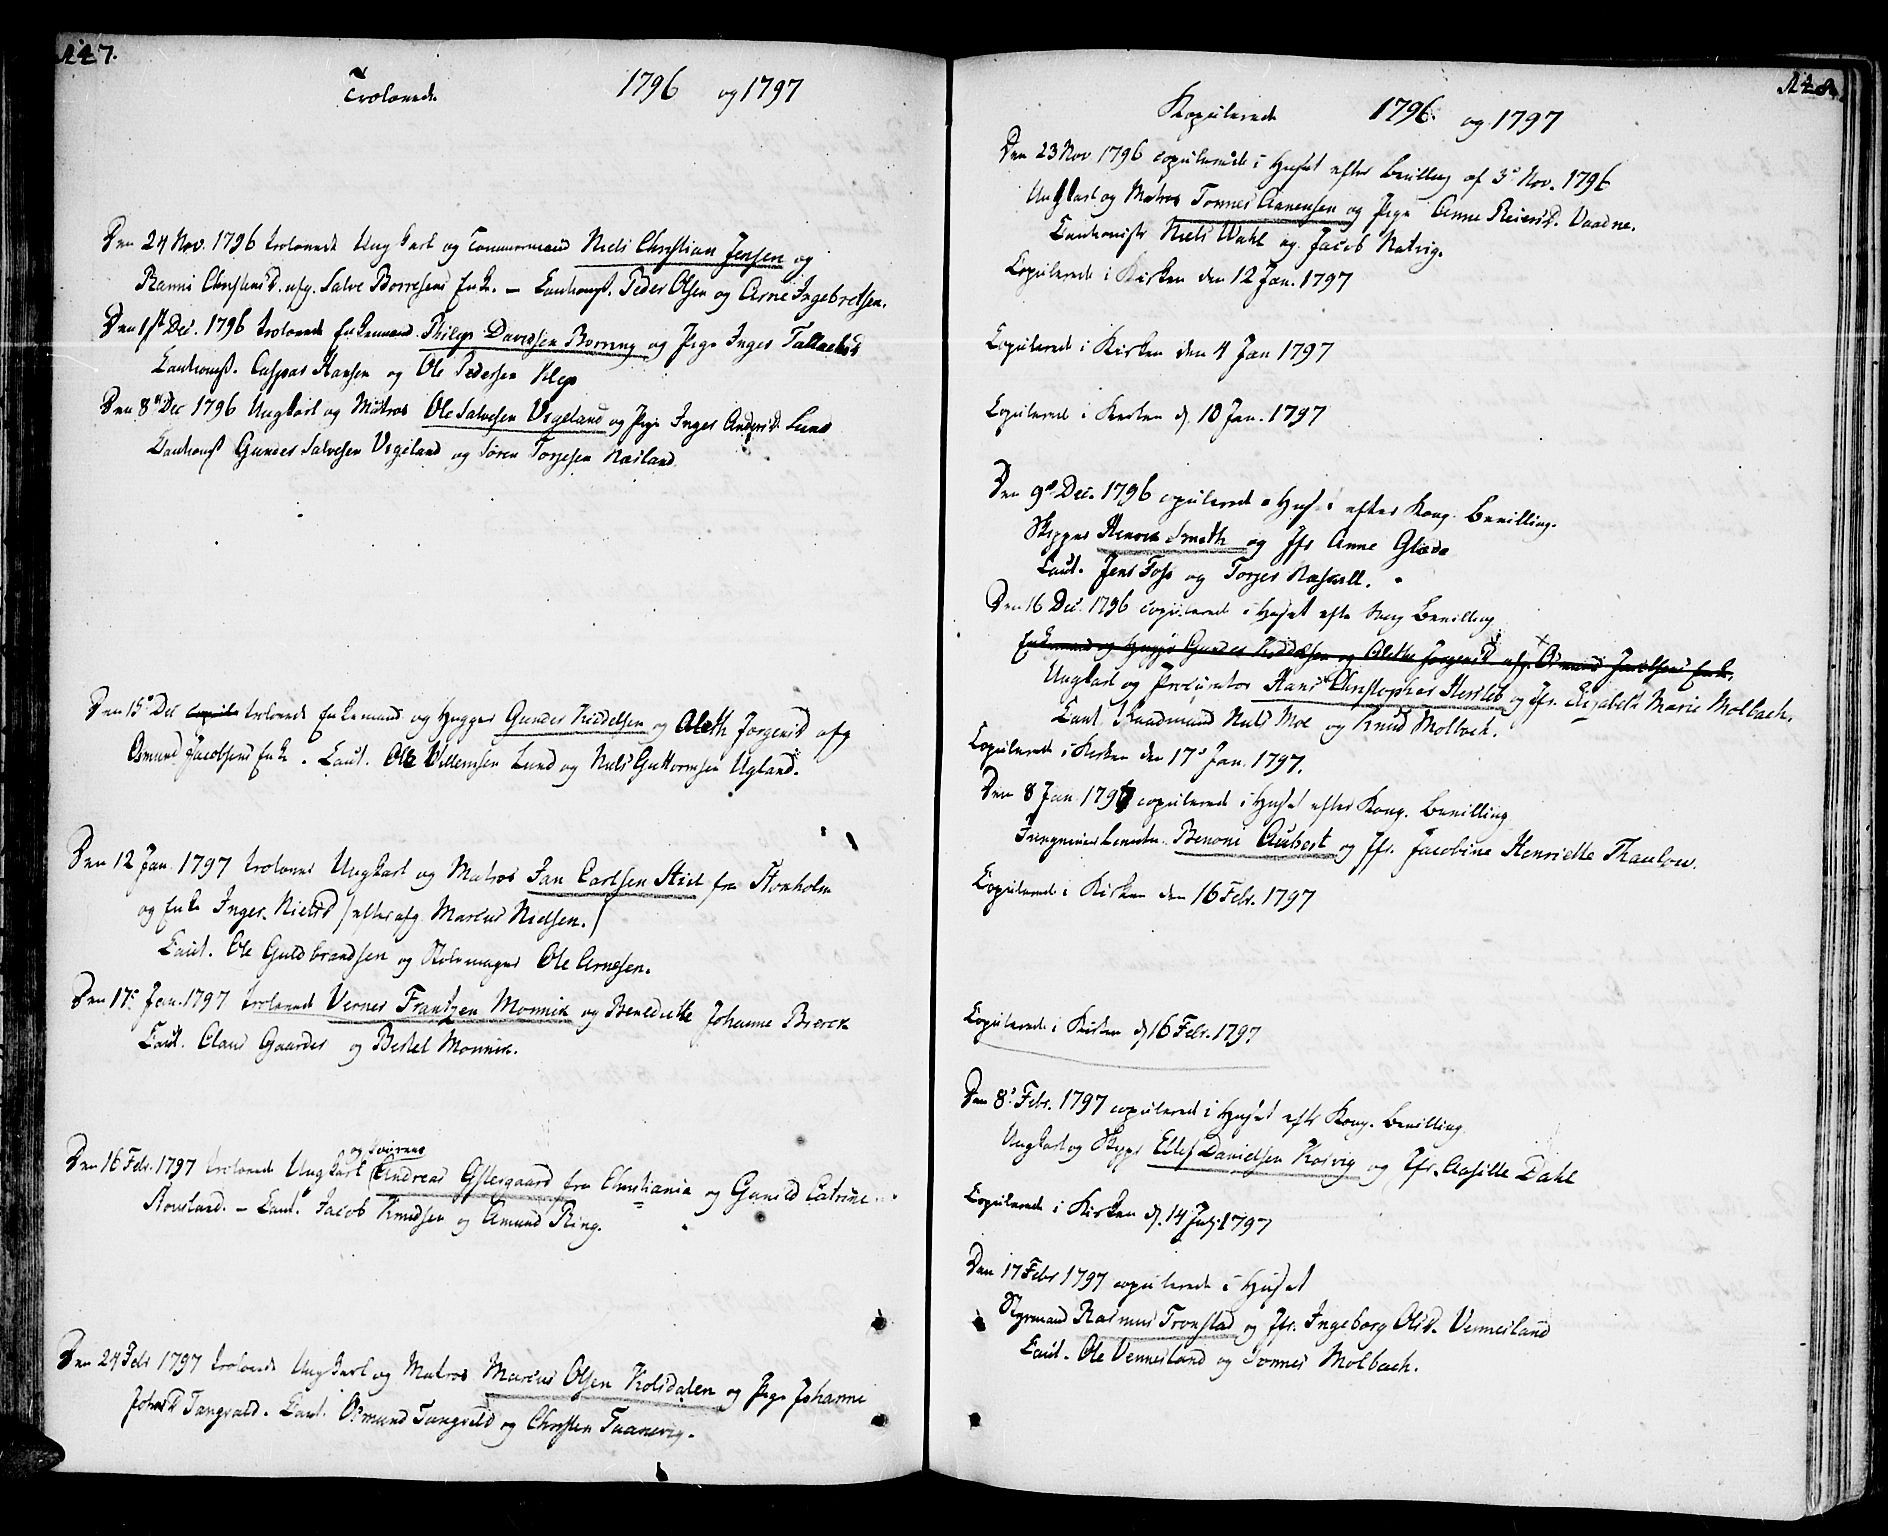 147.
Trolovede 1796 og 1797
Den 24 Nov. 1796 trolovede Ungkarl og Tømmermand Niels Christian Jensen og
Ranni Christensd. afg. Salve Børresens Enke. – Cautionist. Peder Olsen og Arne Ingebretsen.
Den 1st Dec. 1796 trolovede Enkemand Philip Davidsen Borreng og Pige Inger Tallachsd
Cautionist. Caspar Hansen og Ole Pedersen Klep
Den 8de Dec 1796 Ungkarl og Matros Ole Salvesen Vigeland og Pige Inger Andersd. Lund
Cautionist Gunder Salvesen Vigeland og Søren Torjesen Næsland.
Den 15de Dec trolovede Enkemand og Hugger Gunder Kiddelsen og Aleth Jørgensd afg
Osmund Jacobsens Enke. Caut. Ole Willemsen Lund og Niels Guttormsen Ugland.
Den 12 Jan. 1797 trolovet Ungkarl og Matros Jan Carlsen Stiel fra Stokholm
og Enke Inger Nielsd (efter afg. Marcus Nielsen.)
Caut. Ole Guldbrandsen og Stolemager Ole Arnesen.
Den 17de Jan. 1797 trolovede Verner Frantzen Monnik og Benedicte Johanne Bierck
Caut. Claus Gaarder og Bertel Monnik.
Den 16 Febr. 1797 trolovede Ungkarl og Andreas Østergaard fra Christiania og Gunild Catrine
Rousland. – Caut. Jacob Knudsen og Amund Ring.
Den 24 Febr 1797 trolovede Ungkarl og Matros Marcus Olsen Kolsdalen og Pige Johanne
Johansd. Tangvald. Caut. Osmund Tangvald og Christen Taanevig.
148.
Kopulerede 1796. og 1797
Den 23 Nov 1796 copulerede i Huset efter Bevilling af 3de Nov. 1796
Ungkarl og Matros Tønnes Aanensen og Pige Anne Reiersd. Vaadne.
Cautionister Niels Wahl og Jacob Natvig.
Copulerede i Kirken den 12 Jan. 1797
Copulerede i Kirken den 4 Jan 1797
Copulerede i Kirken d. 10 Jan. 1797
Den 9de Dec. 1796 copulerede i Huset efter Kong. Bevilling.
Skipper Henrik Smith og Jfr Anne Glæde
Caut. Jens Foss og Torjer Kaswell.
Den 16 Dec. 1796 copulerede i Huset efter Kong Bevilling
Enkemand og Hugger Gunder Kiddelsen og Alethe Jørgensd afg. Osmund Jacobsens Enke.
Ungkarl og Procurator Hans Christopher Hersleb og Jfr. Elizabeth Marie Molbach.
Caut. Raadmand Niels Moe og Knud Molbach.
Copulerede i Kirken den 17de Jan. 1797.
Den 8 Jan 1797 copulerede i Huset efter Kong. Bevilling
Benoni Aubert og Jfr. Jacobine Henriette Thaulow.
Copulerede i Kirken den 16 Febr. 1797
Copulerede i Kirken d. 16 Febr. 1797
Den 8de Febr. 1797 copulerede i Huset eftr Kong. Bevilling
Ungkarl og Skipper Ellef Danielsen Korvig og Jfr. Aasille Dahl
Copulerede i Kirken d. 14 July 1797
Den 17 Febr 1797 copulerede i Huset
Styrmand Rasmus Tronstad og Jfr. Ingeborg Olsd. Vennesland
Caut. Ole Vennesland og Tønnes Molbach.